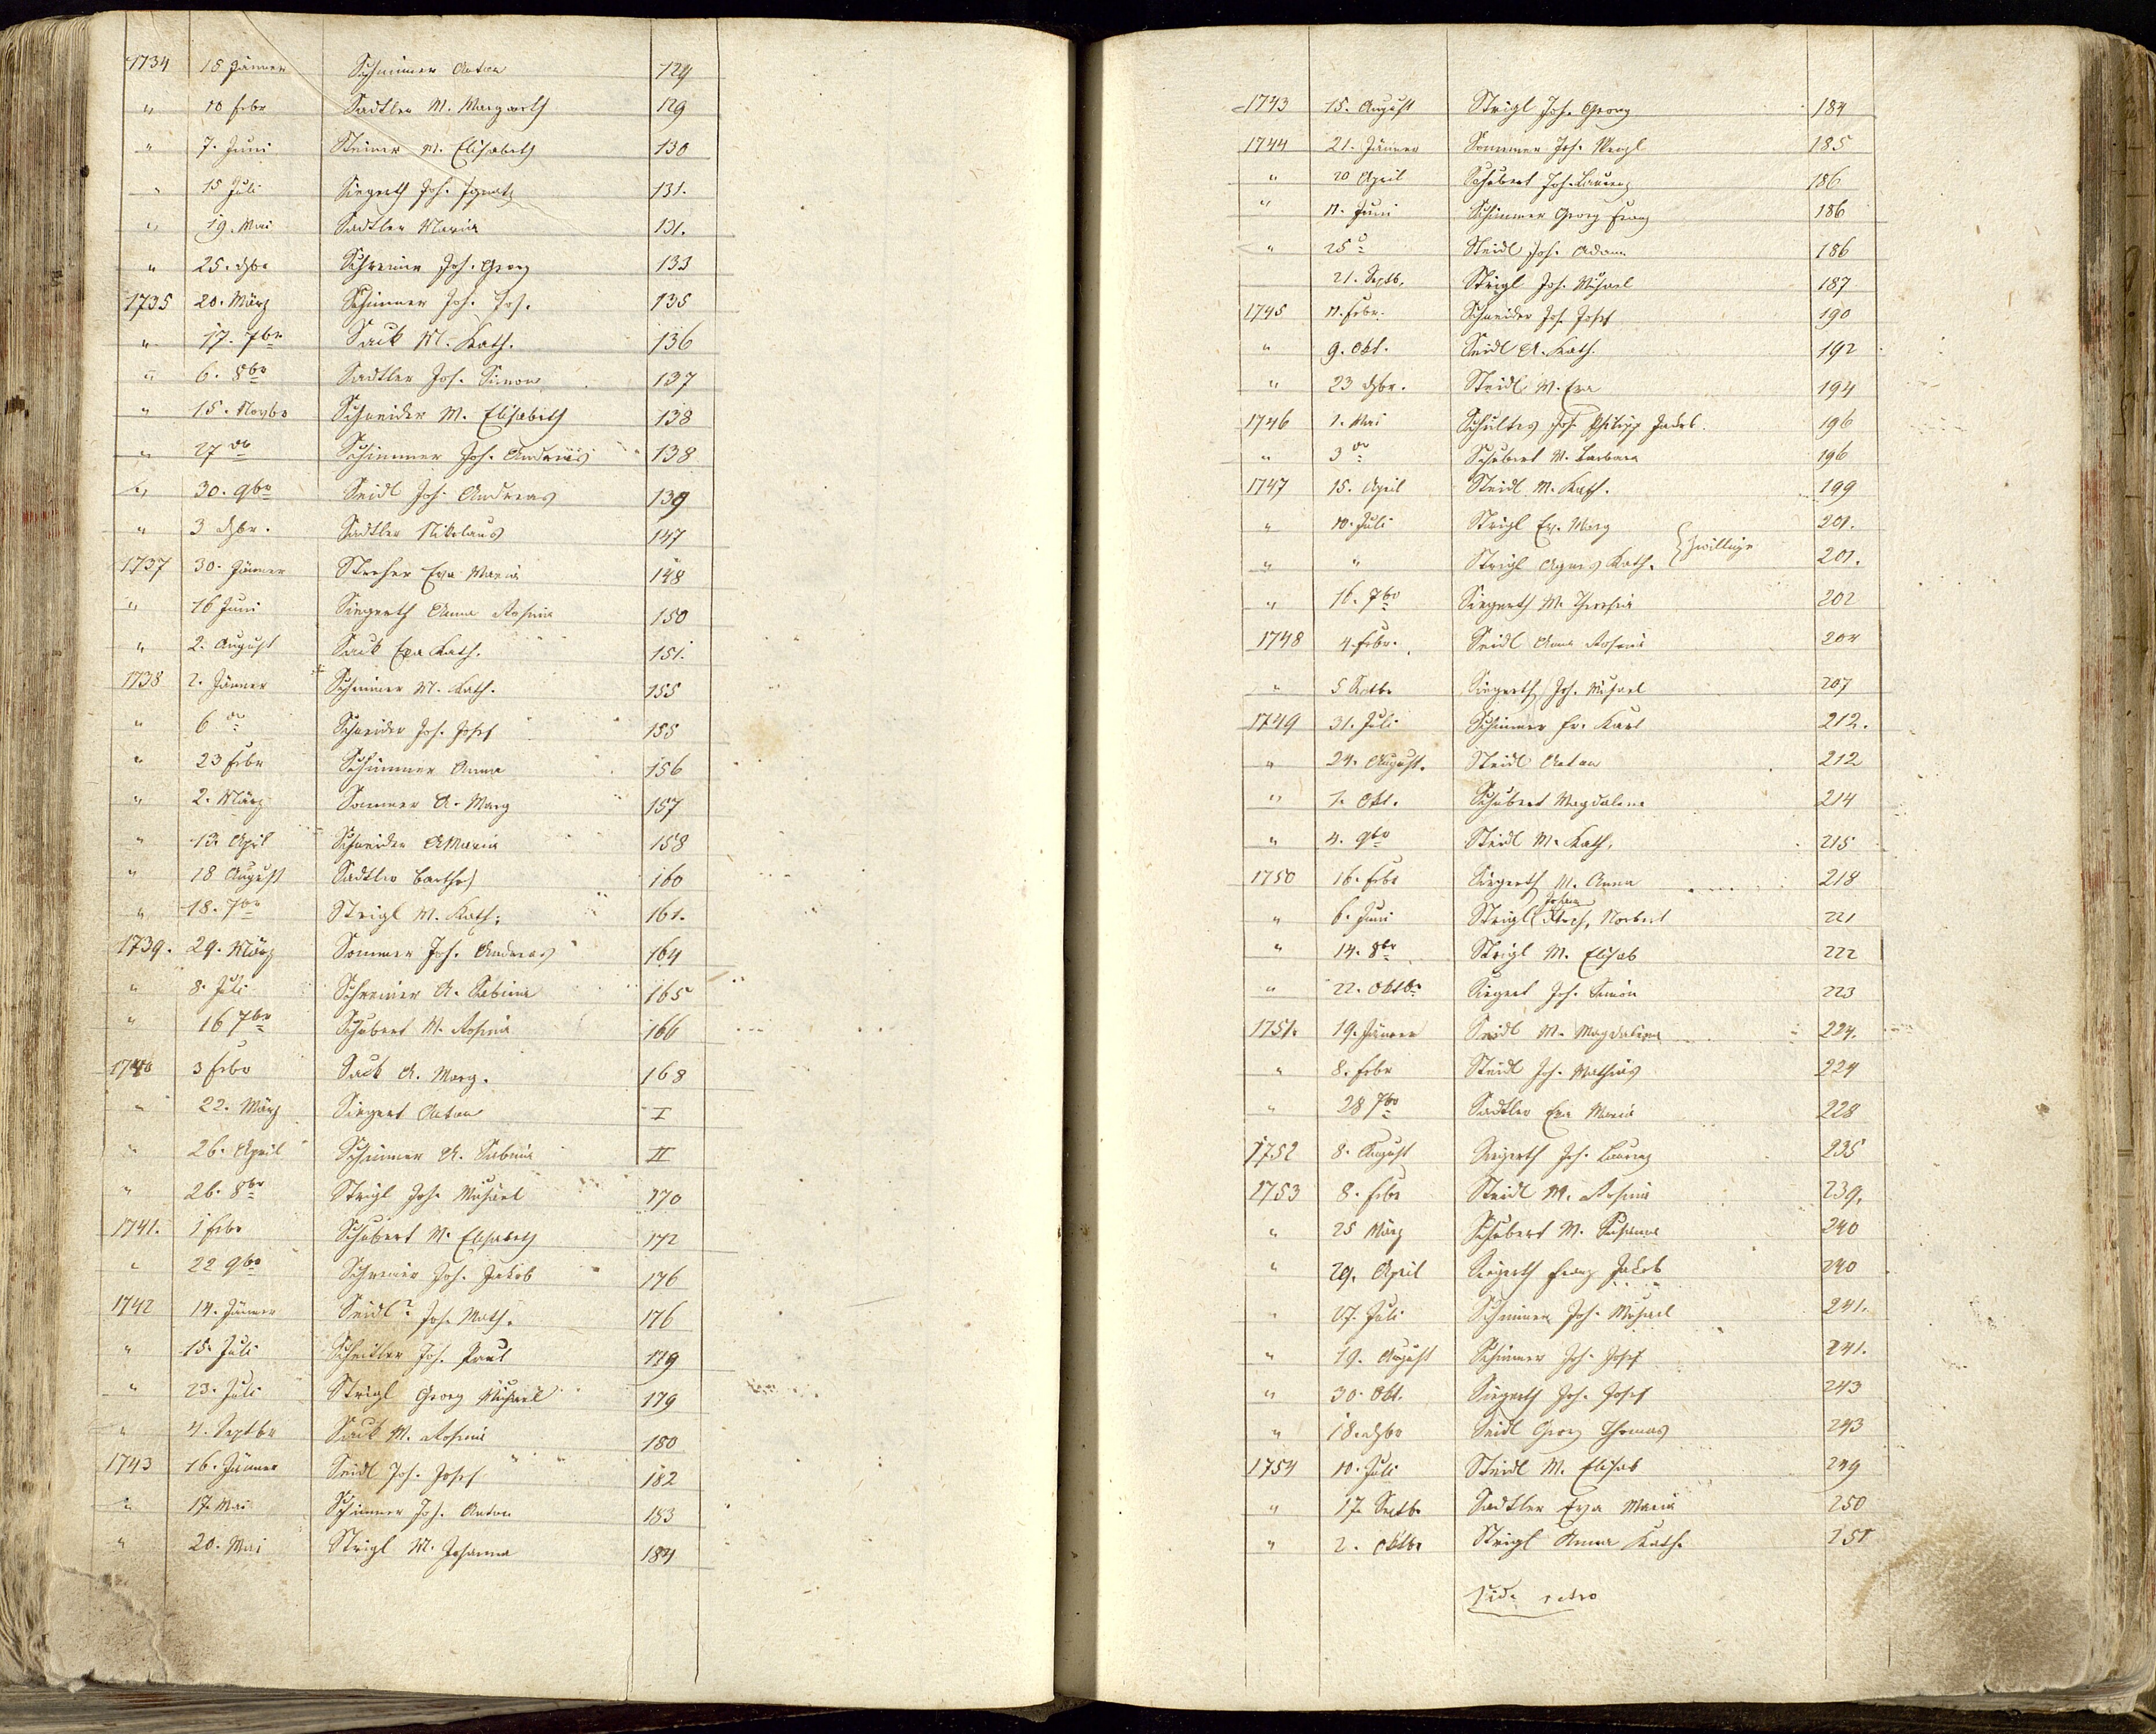 1734 15 Jänner Schimmer Anton 124
" 10 Febr Sadtler M. Margareth 129
" 7. Juni Steiner M. Elisabeth 130
" 15 Juli Siegerth Joh. Ignatz 131.
" 19. Mai Sadtler Maria 131.
" 25. Xbr Schreiner Joh. Georg 133
1735 20. März Schimmer Joh. Jos. 135
" 17. 7br Sack M. Kath. 136
" 6. 8br Sadtler Joh. Simon 137
" 15. Novbr Schneider M. Elisabeth 138
" 27 do Schimmer Joh. Andreas 138
" 30. 9br Seidl Joh. Andreas 139
" 3 Xbr. Sadtler Nikolaus 147
1737 30. Jänner Streher Eva Maria 148
" 16 Juni Siegerth Anna Rosina 150
" 2. August Sack Eva Kath. 151.
1738 2. Jänner Schreiner M. Kath. 155
" 6 do Schneider Joh. Josef 155
" 23 Febr Schimmer Anna 156
" 2. März Sommer A. Marg 157
" 13. April Schneider A Maria 158
" 18 August Sadtler Barthol 160
" 18. 7br Strigl M. Kath. 161.
1739. 29. März Sommer Joh. Andreas 164
" 8. Juli Schreiner A. Sabina 165
" 16 7br Schubert M. Rosina 166
1740 3 Febr Sack A. Marg. 168
" 22. März Siegert Anton I
" 26. April Schimmer A. Sabina II
" 26. 8br Strigl Joh. Michael 170
1741. 1 Febr Schubert M. Elisabeth 172
" 22 9br Schreiner Joh. Jakob 176
1742 14. Jänner Seidl? Joh. Math. 176
" 15. Juli Joh. Paul 179
" 23. Juli Strigl Georg Michael 179
" 4. Septbr Sack M. Rosina 180
1743 16. Jänner Seidl Joh. Josef 182
" 17. Mai Schimmer Joh. Anton 183
" 20. Mai Strigl M. Johanna 184
1743 15. August Strigl Joh. Georg 184
1744 21. Jänner Sommer Joh. 185
" 20 April Schubert Joh. Laurenz 186
" 11. Juni Schimmer Georg Franz 186
" 25 do Steidl Joh. Adam 186
21. Septb. Strigl Joh. Michael 187
1745 11. Febr. Schneider Joh. Josef 190
" 9. Okt. Seidl A. Kath. 192
" 23 Xbr. Steidl M. Eva 194
1746 1. Mai Schultes Joh. Philipp Jakob. 196
" 3 do Schubert M. Barbara 196
1747 15. April Steidl M. Kath. 199
" 10. Juli Strigl Ev. Marg 201.
" " Strigl Agnes Kath. } Zwillinge 201.
" 16. 7br Siegerth M. Theresia 202
1748 4. Febr. Seidl Anna Rosina 204
" 5 Septbr Siegerth Joh. Michael 207
1749 31. Juli Schimmer Fr. Karl 212.
" 24. August. Steidl Anton 212
" 1. Okt. Schubert Magdalena 214
" 4. 9br Steidl M. Kath. 215
1750 16. Febr Siegerth M. Anna 218
" 6. Juni Strigl Johann Norbert 221
" 14. 8br Strigl M. Elisab 222
" 22. Oktbr Siegert Joh. Simon 223
1751. 19. Jänner Seidl M. Magdalena 224.
" 8. Febr Steidl Joh. Mathias 224
" 28 7br Sadtler Eva Maria 228
1752 8. August Siegerth Joh. Laurenz 235
1753 8. Febr Steidl M. Rosina 239.
" 25 März Schubert M. Susanna 240
" 29. April Siegerth Franz Jakob 240
" 27. Juli Schreiner Joh. Michael 241.
" 19. August Schimmer Joh. Josef 241.
" 30. Okt. Siegerth Joh. Josef 243
" 18. Xbr Seidl Georg Thomas 243
1754 10. Juli Steidl M. Elisab 249
" 17. Septb. Sadtler Eva Maria 250
" 2. Oktbr Strigl Anna Kath. 251
Vide retro